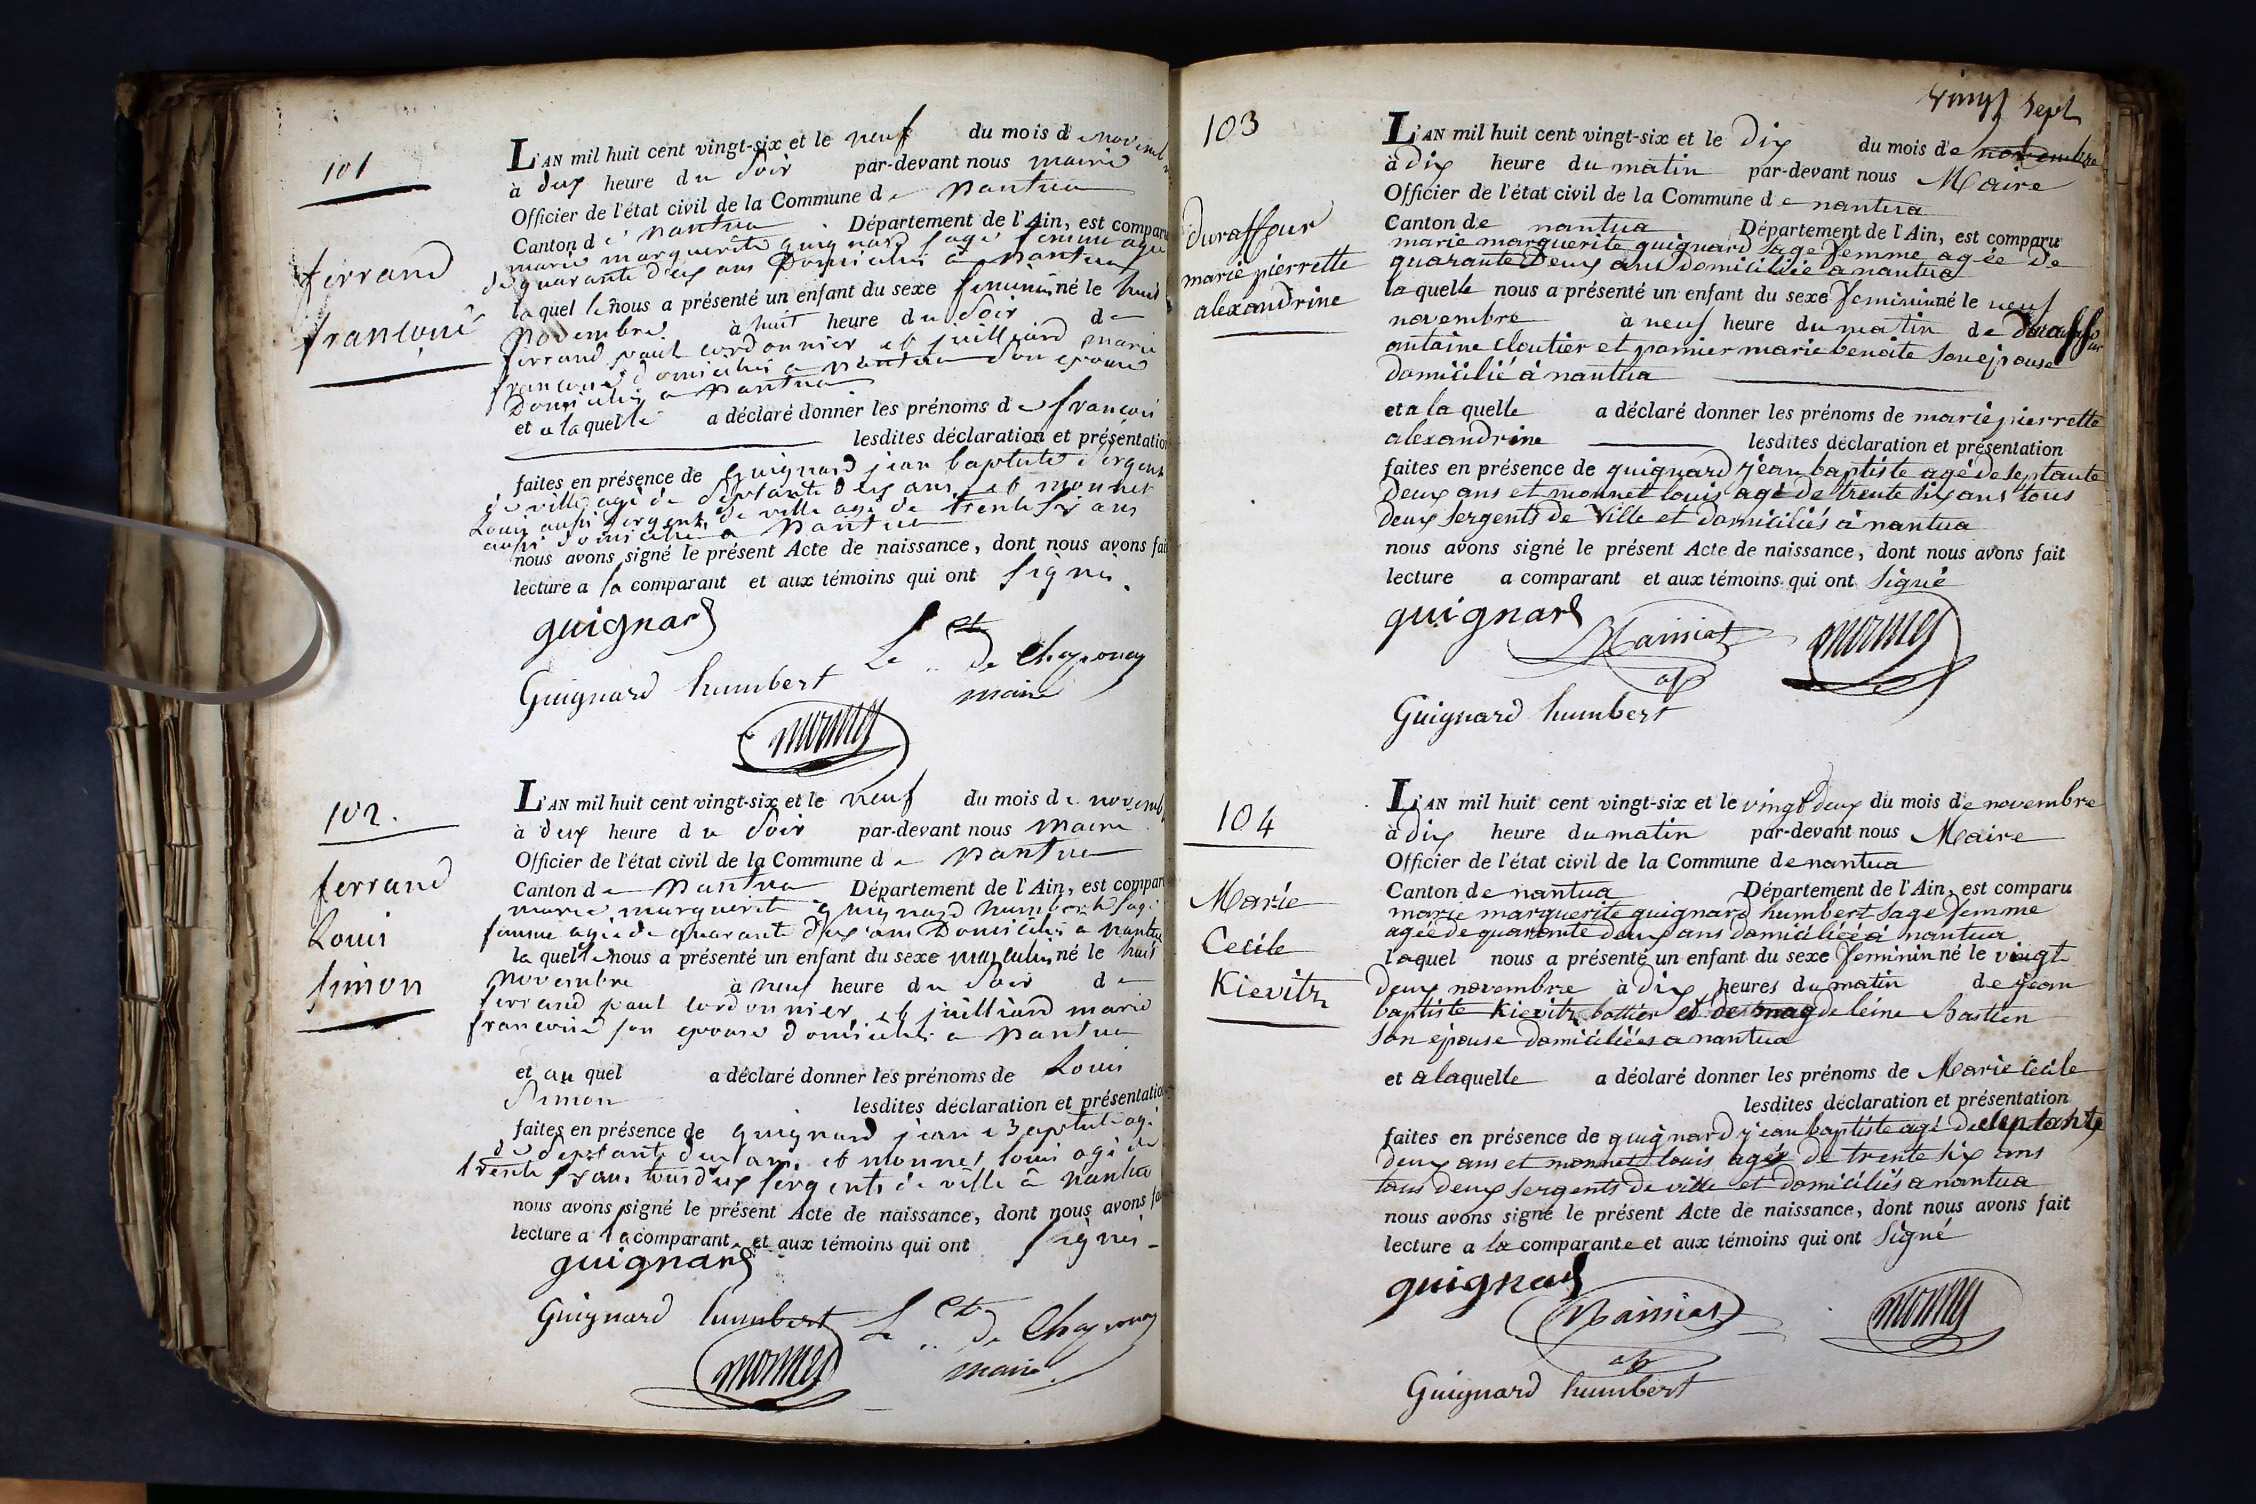 101
ferrand
françoise
L'AN mil huit cent vingt-six et le neuf du mois de novemb
à deux heure du Soir par-devant nous maire
Officier de l'état civil de la Commune de Nantua
Canton de Nantua Département de l'Ain, est comparu
marie marguerite guignard sage femme agée
de quarante deux ans Domiciliée a Nantua
laquelle nous a présenté un enfant du sexe feminin né le huit
Novembre à huit heure du Soir de
ferrand paul cordonnier et juillard marie
francoise domiciliés a Nantua son epouse
Domiciliés a Nantua
et a laquelle a déclaré donner les prénoms de françoise
lesdites déclaration et présentation
faites en présence de guignard jean baptiste sergent
de ville agé de septante deux ans et monnet
Louis aussi sergent de ville agé de trente six ans
aussi domicilié a Nantua
nous avons signé le présent Acte de naissance, dont nous avons fait
lecture a la comparant et aux témoins qui ont signés.
guignard
Guignard humbert Le Cte de Chaponay
maire
monnet
102.
ferrand
Louis
Simon
L'AN mil huit cent vingt-six et le neuf du mois de novemb
à deux heure du Soir par-devant nous maire
Officier de l'état civil de la Commune de Nantua
Canton de Nantua Département de l'Ain, est comparu
marie marguerite guignard humbert sage
femme agée de quarante deux ans Domiciliée a nantua
la quelle nous a présenté un enfant du sexe masculin né le huit
Novembre à neuf heure du Soir de
ferrand paul cordonnier et juilliard marie
francoise son epouse domiciliés a Nantua
et au quel a déclaré donner les prénoms de Louis
Simon lesdites déclaration et présentation
faites en présence de guignard jean Baptiste agé
de septante deux ans et monnet louis agé de
trente six ans tous deux sergents de ville à nantua
nous avons signé le présent Acte de naissance, dont nous avons fait
lecture a la comparant et aux témoins qui ont signés -
guignard
Guignard humbert Le Cte de Chaponay
monnet maire.
vingt sept
103
duraffour
marie pierrette
alexandrine
L'AN mil huit cent vingt-six et le dix du mois de novembre
à dix heure du matin par-devant nous Maire
Officier de l'état civil de la Commune de nantua
Canton de nantua Département de l'Ain, est comparu
marie marguerite guignard sage femme agée de
quarante Deux ans domiciliée a nantua
laquelle nous a présenté un enfant du sexe feminin né le neuf
novembre à neuf heure du matin de duraffour
antoine cloutier et pornier marie benoite son epouse
domicilié à nantua
et a la quelle a déclaré donner les prénoms de marie pierrette
alexandrine lesdites déclaration et présentation
faites en présence de guignard jean baptiste agé de septante
Deux ans et monnet louis agé de trente six ans tous
deux sergents de ville et domiciliés à nantua
nous avons signé le présent Acte de naissance, dont nous avons fait
lecture a comparant et aux témoins qui ont signé
guignard
monnet
Guignard humbert
104
Marie
Cecile
Kievitz
L'AN mil huit cent vingt-six et le vingt deux du mois de novembre
à dix heure du matin par-devant nous Maire
Officier de l'état civil de la Commune de nantua
Canton de nantua Département de l'Ain, est comparu
marie marguerite guignard humbert sage femme
agée de quarante deux ans domiciliée à nantua
laquel nous a présenté un enfant du sexe feminin né le vingt
deux novembre à dix heures du matin de jean
baptiste Kievitz bottier et de magdeleine Bastien
son épouse domiciliées a nantua
et a laquelle a déclaré donner les prénoms de Marie Cécile
lesdites déclaration et présentation
faites en présence de guignard jean baptiste agé de septante
deux ans et monnet louis agés de trente six ans
tous deux sergents de ville et domiciliés a nantua
nous avons signé le présent Acte de naissance, dont nous avons fait
lecture a la comparante et aux témoins qui ont signé
guignard
monnet
Guignard humbert